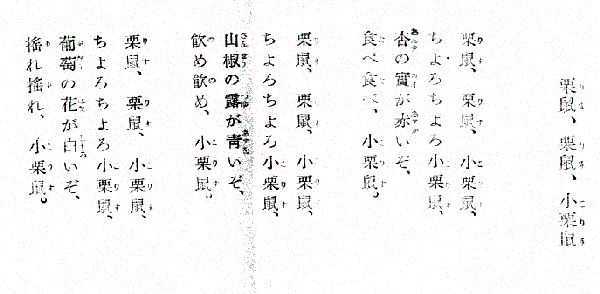 栗鼠、栗鼠、小栗鼠
栗鼠、栗鼠、小栗鼠、
ちよろちよろ小栗鼠、
杏の實が赤いぞ、
食べ食べ、小栗鼠。
栗鼠、栗鼠、小栗鼠、
ちよろちよろ小栗鼠、
山椒の露が青いぞ、
飮め飮め、小栗鼠。
栗鼠、栗鼠、小栗鼠、
ちよろちよろ小栗鼠、
葡萄の花が白いぞ、
搖れ搖れ、小栗鼠。